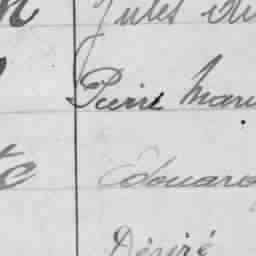 Jules
Pierre Marie
Edouard
Désiré